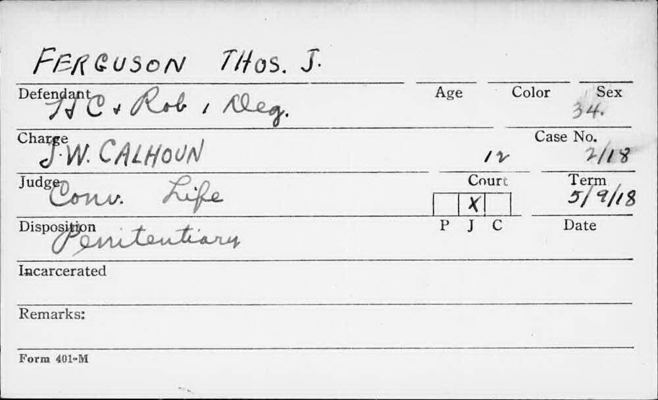 FERGUSON THOS. J.
Defendant Age Color Sex
H C & Rob 1 Deg. 34.
Charge Case No.
J.W. CALHOUN 12 2/18
Judge Court Term
Conv. Life X 5/9/18
Disposition P J C Date
Penitentiary
Incarcerated
Remarks:
Form 401-M